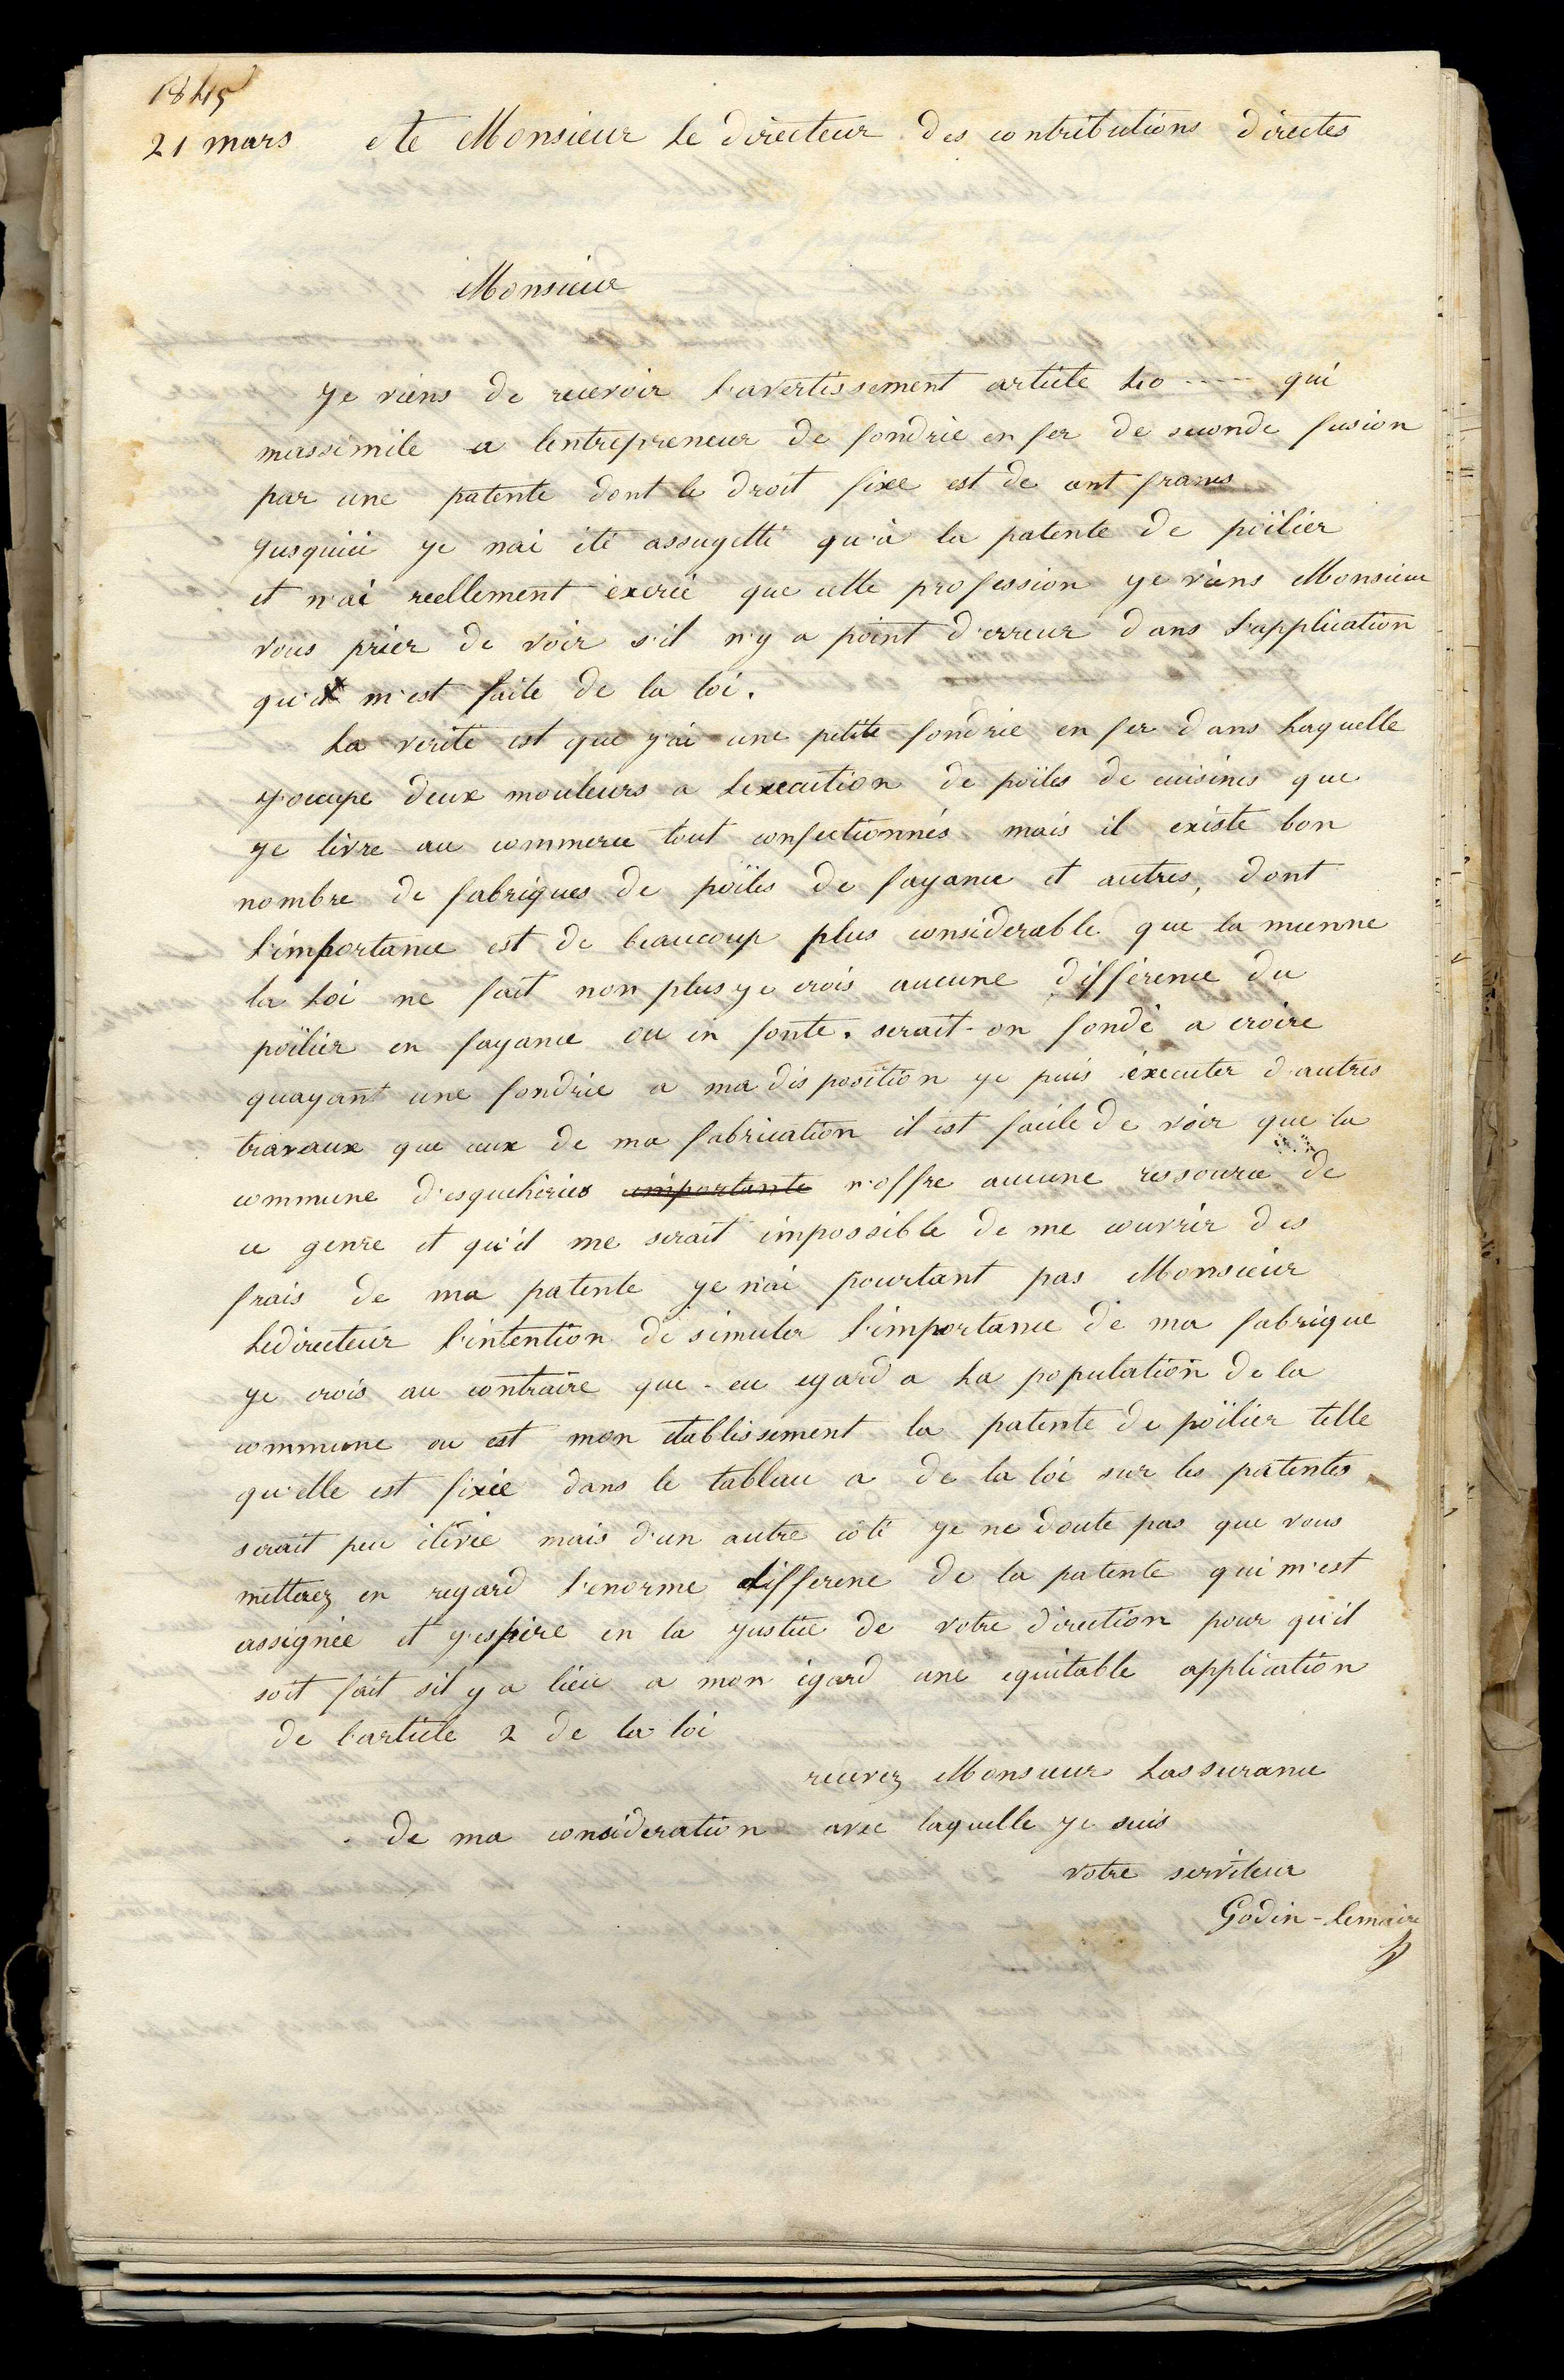 1845
21 mars A Monsieur le directeur des contributions directes
Monsieur
Je viens de recevoir l'avertissement article 40 ---- qui
massimile a lentrepreneur de fondrie en fer de seconde fusion
par une patente dont le droit fixe est de cent francs
Jusquici je nai été assugetti qu'à la patente de poïlier
et n'ai reellement éxercé que cette profession je viens Monsieur
vous prier de voir s'il n'y a point d'erreur dans l'application
qui m'est faite de la loi.
La verité est que j'ai une petite fondrie en fer dans laquelle
j'occupe deux mouleurs a lexecution de poïles de cuisines que
je livre au commerce tout confectionnés mais il existe bon
nombre de fabriques de poïles de fayance et autres, dont
l'importance est de beaucoup plus considerable que la mienne
la loi ne fait non plus je crois aucune différence du
poïlier en fayance ou en fonte. serait-on fondé a croire
quayant une fondrie a ma disposition je puis éxecuter d'autres
travaux que ceux de ma fabrication il est facile de voir que la
commune d'esqueheries importante n'offre aucune ressource de
ce genre et qu'il me serait impossible de me couvrir des
frais de ma patente je n'ai pourtant pas Monsieur
Ledirecteur l'intention de simuler l'importance de ma fabrique
je crois au contraire que - eu egard a la population de la
commune ou est mon etablissement la patente de poïlier telle
qu'elle est fixée dans le tableau a de la loi sur les patentes
serait peu élévée mais d'un autre côté je ne doute pas que vous
metterez en regard l'enorme differene de la patente qui m'est
assignée et j'espère en la justice de votre direction pour qu'il
soit fait sil y a lieu a mon égard une equitable application
de l'article 2 de la loi
recevez Monsieur Lassurance
de ma consideration avec laquelle je suis
votre serviteur
Godin-Lemaire